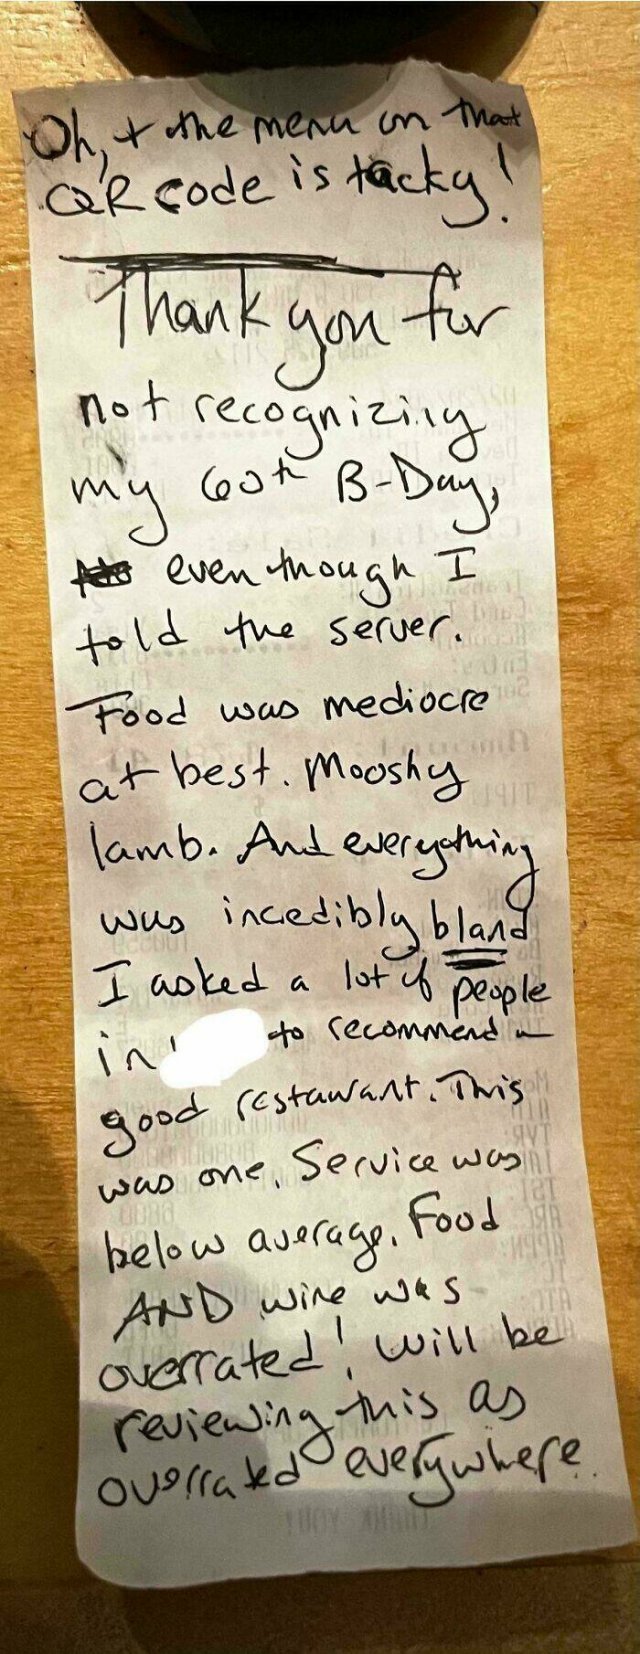 Oh, + the menu on that
QR code is tacky!
Thank you for
not recognizing
my 60th B-Day,
even though I
told the server.
Food was mediocre
at best. Mooshy
lamb. And everything
was incedibly bland
I asked a lot of people
in to recommend a
good restaurant. This
was one. Service was
below average. Food
AND wine was
overrated! Will be
reviewing this as
overrated everywhere.